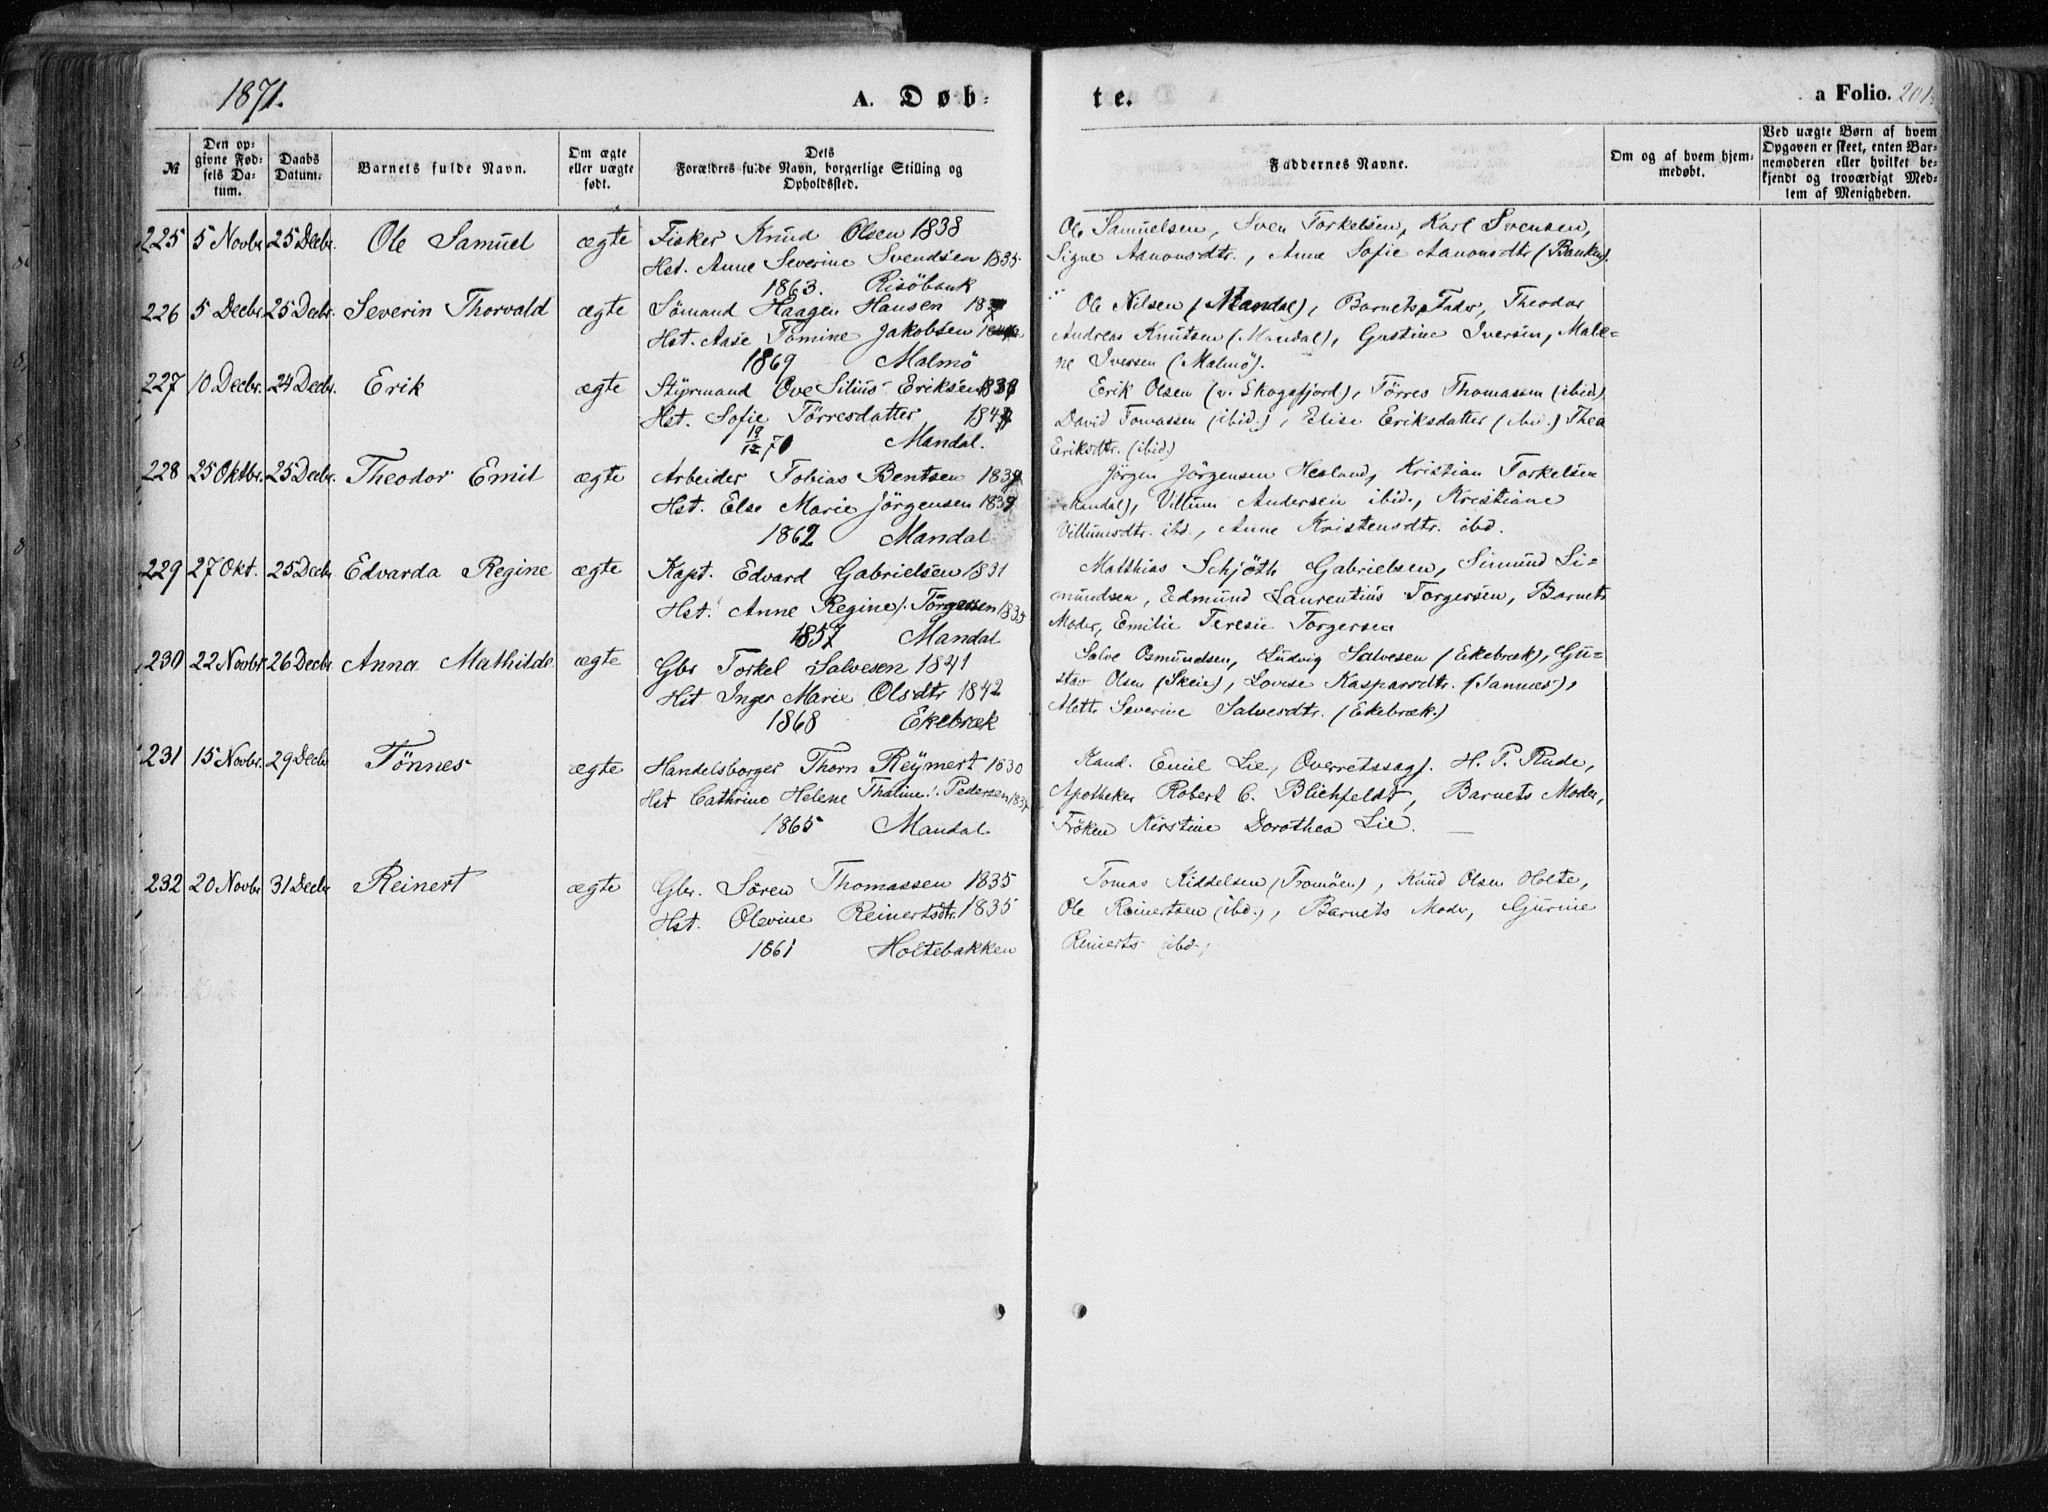 1871. A. Døb- te. a Folio. 201.
№
Den op-
givne Fød-
sels Da-
tum.
Daabs
Datum.
Barnets fulde Navn.
Om ægte
eller uægte
født.
Dets
Forældres fulde Navn, borgerlige Stilling og
Opholdssted.
Faddernes Navne.
Om og af hvem hjem-
medøbt.
Ved uægte Børn af hvem
Opgaven er skeet, enten Bar-
nemoderen eller hvilket be-
kjendt og troværdigt Med-
lem af Menigheden.
225 5 Novbr. 25 Decbr. Ole Samuel ægte Fisker Knud Olsen 1838
Hst. Anne Severine Svendsen 1835
1863. Risöbank
Ole Samuelsen, Sven Torkelsen, Karl Svensen,
Signe Aanonsdtr., Anne Sofie Aanonsdtr (Banken).
226 5 Decbr. 25 Decbr. Severin Thorvald ægte Sömand Haagen Hansen
Hst. Aase Tomine Jakobsen
1869 Malmö
Ole Nilsen (Mandal), Barnets Fader, Theodor
Andreas Knutsen (Mandal), Gustine Iversen, Male-
ne Iversen (Malmö).
227 10 Decbr. 24 Decbr. Erik ægte Styrmand Ove Silius Eriksen 1838
Hst. Sofie Törresdatter
19/12 70 Mandal.
Erik Olsen (v. Skogsfjord), Törres Thomassen (ibid)
David Tomassen (ibid.), Elise Eriksdatter (ibid.) Thea
Eriksdtr. (ibid)
228 25 Oktbr. 25 Decbr. Theodor Emil ægte Arbeider Tobias Bentsen 1839
Hst. Else Marie Jörgensen 1839
1862 Mandal
Jörgen Jörgensen Hesland, Kristian Torkelsen
Mandal), Villum Andersen ibid., Kristiane
Villumsdtr. ibd., Anne Kristensdtr. ibd.
229 27 Okt. 25 Decbr Edvarda Regine ægte Kapt. Edvard Gabrielsen 1831
Hst. Anne Regine f. Törgersen 1835
1857 Mandal
Matthias Schjöth Gabrielsen, Simund Si-
mundsen, Edmund Laurentius Torgersen, Barnets
Moder, Emilie Teresie Torgersen
230 22 Novbr 26 Decbr Anna Mathilde ægte Gbr Torkel Salvesen 1841
Hst Inger Marie Olsdtr 1842
1868 Ekebræk
Salve Osmundsen, Ludvig Salvesen (Ekebræk), Gu-
stav Olsen (Skeie), Lovise Kaspersdtr. (Sannes),
Mette Severine Salvesdtr. (Ekebræk.)
231 15 Novbr. 29 Decbr Tönnes ægte Handelsborger Thorn Reymert 1830
Hst Cathrine Helene Thaline f. Pedersen
1865 Mandal
Kand. Emil Lie, Overretssagf. H. P. Rude,
Apotheker Robert C. Blichfeldt, Barnets Moder,
Fröken Kirstine Dorothea Lie.
232 20 Novbr 31 Decbr Reinert ægte Gbr. Sören Thomassen 1835
Hst. Olevine Reinertsdtr. 1835
1861 Holtebakken
Tomas Kiddelsen (Tromöen), Knud Olsen Holte,
Ole Reinertsen (ibd.), Barnets Moder, Gjurine
Reinerts ibd.,